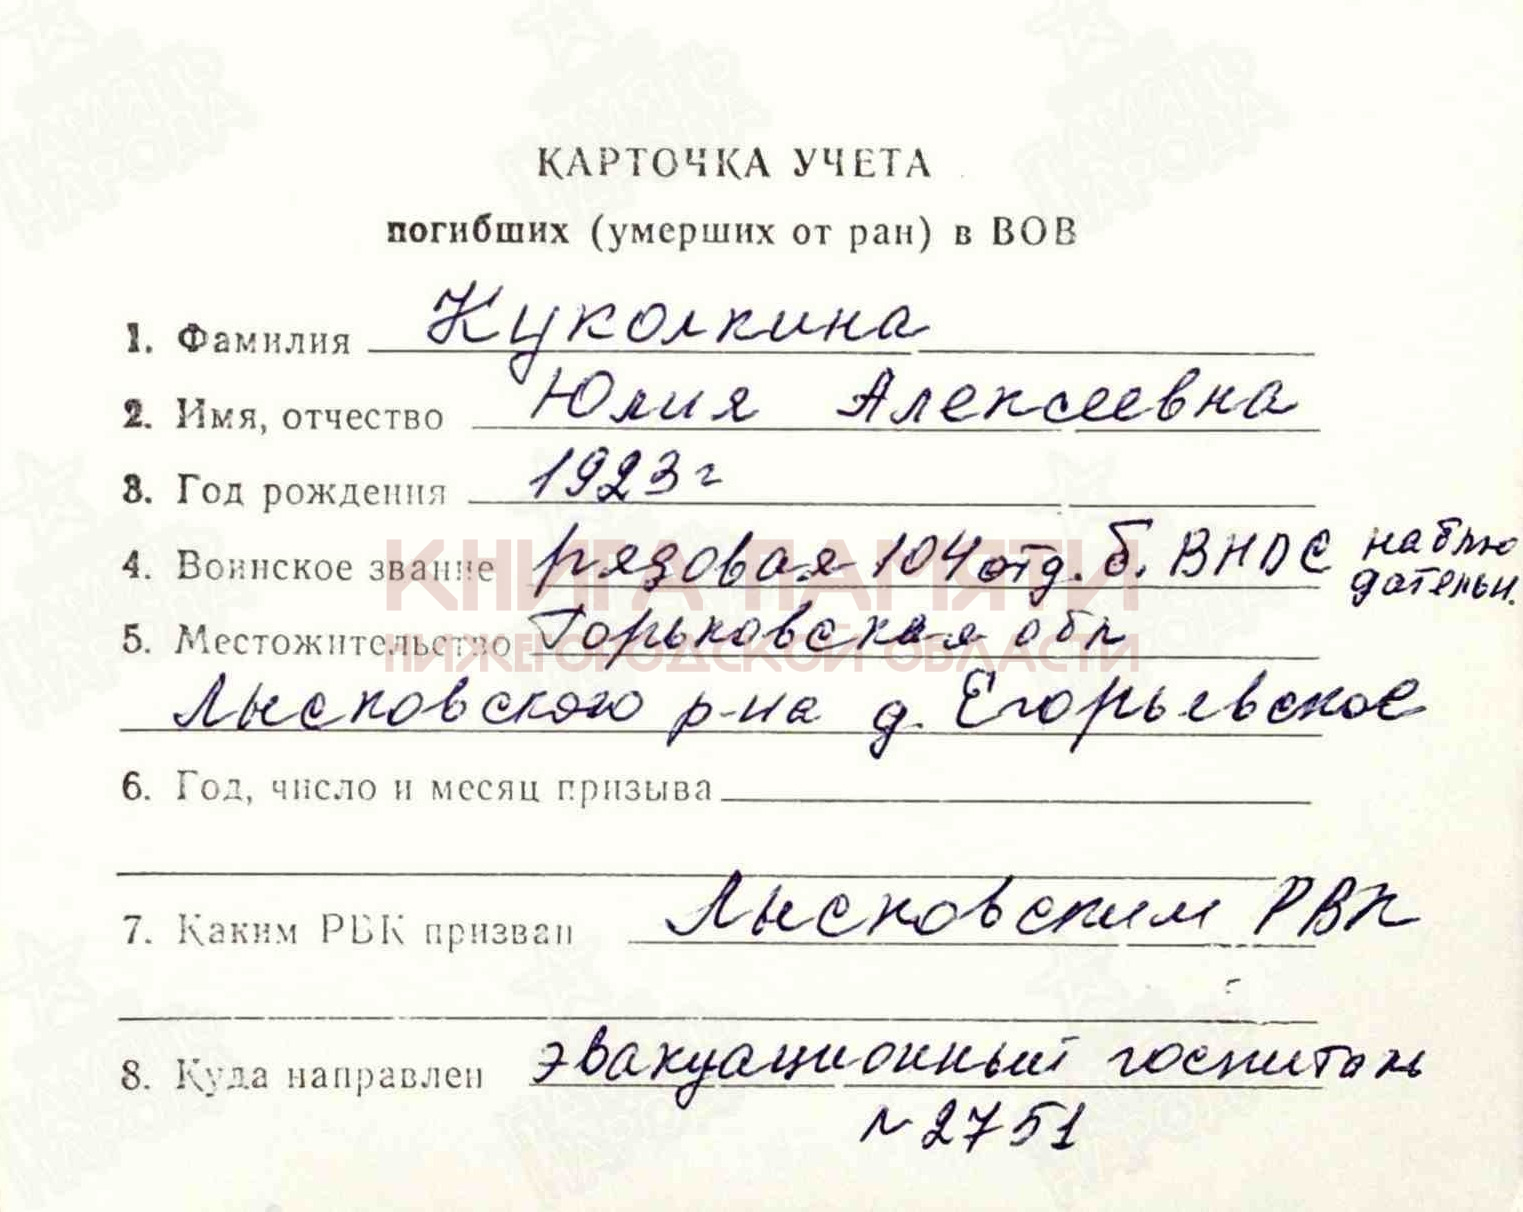 КАРТОЧКА УЧЕТА
погибших (умерших от ран) в ВОВ
1. Фамилия Куколкина
2. Имя, отчество Юлия Алексеевна
3. Год рождения 1923 г
4. Воинское звание рядовая 104 отд. б. ВНОС наблю
дательн.
КНИГА ПАМЯТИ
5. Местожительство Горьковская обл
НИЖЕГОРОДСКОЙ ОБЛАСТИ
Лысковского р-на д. Егорьевское
6. Год, число и месяц призыва
7. Каким РВК призван Лысковским РВК
8. Куда направлен эвакуационный госпиталь
№ 2751
ПАМЯТЬ НАРОДА